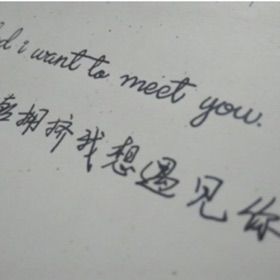 d i want to meet you.
拥挤我想遇见你